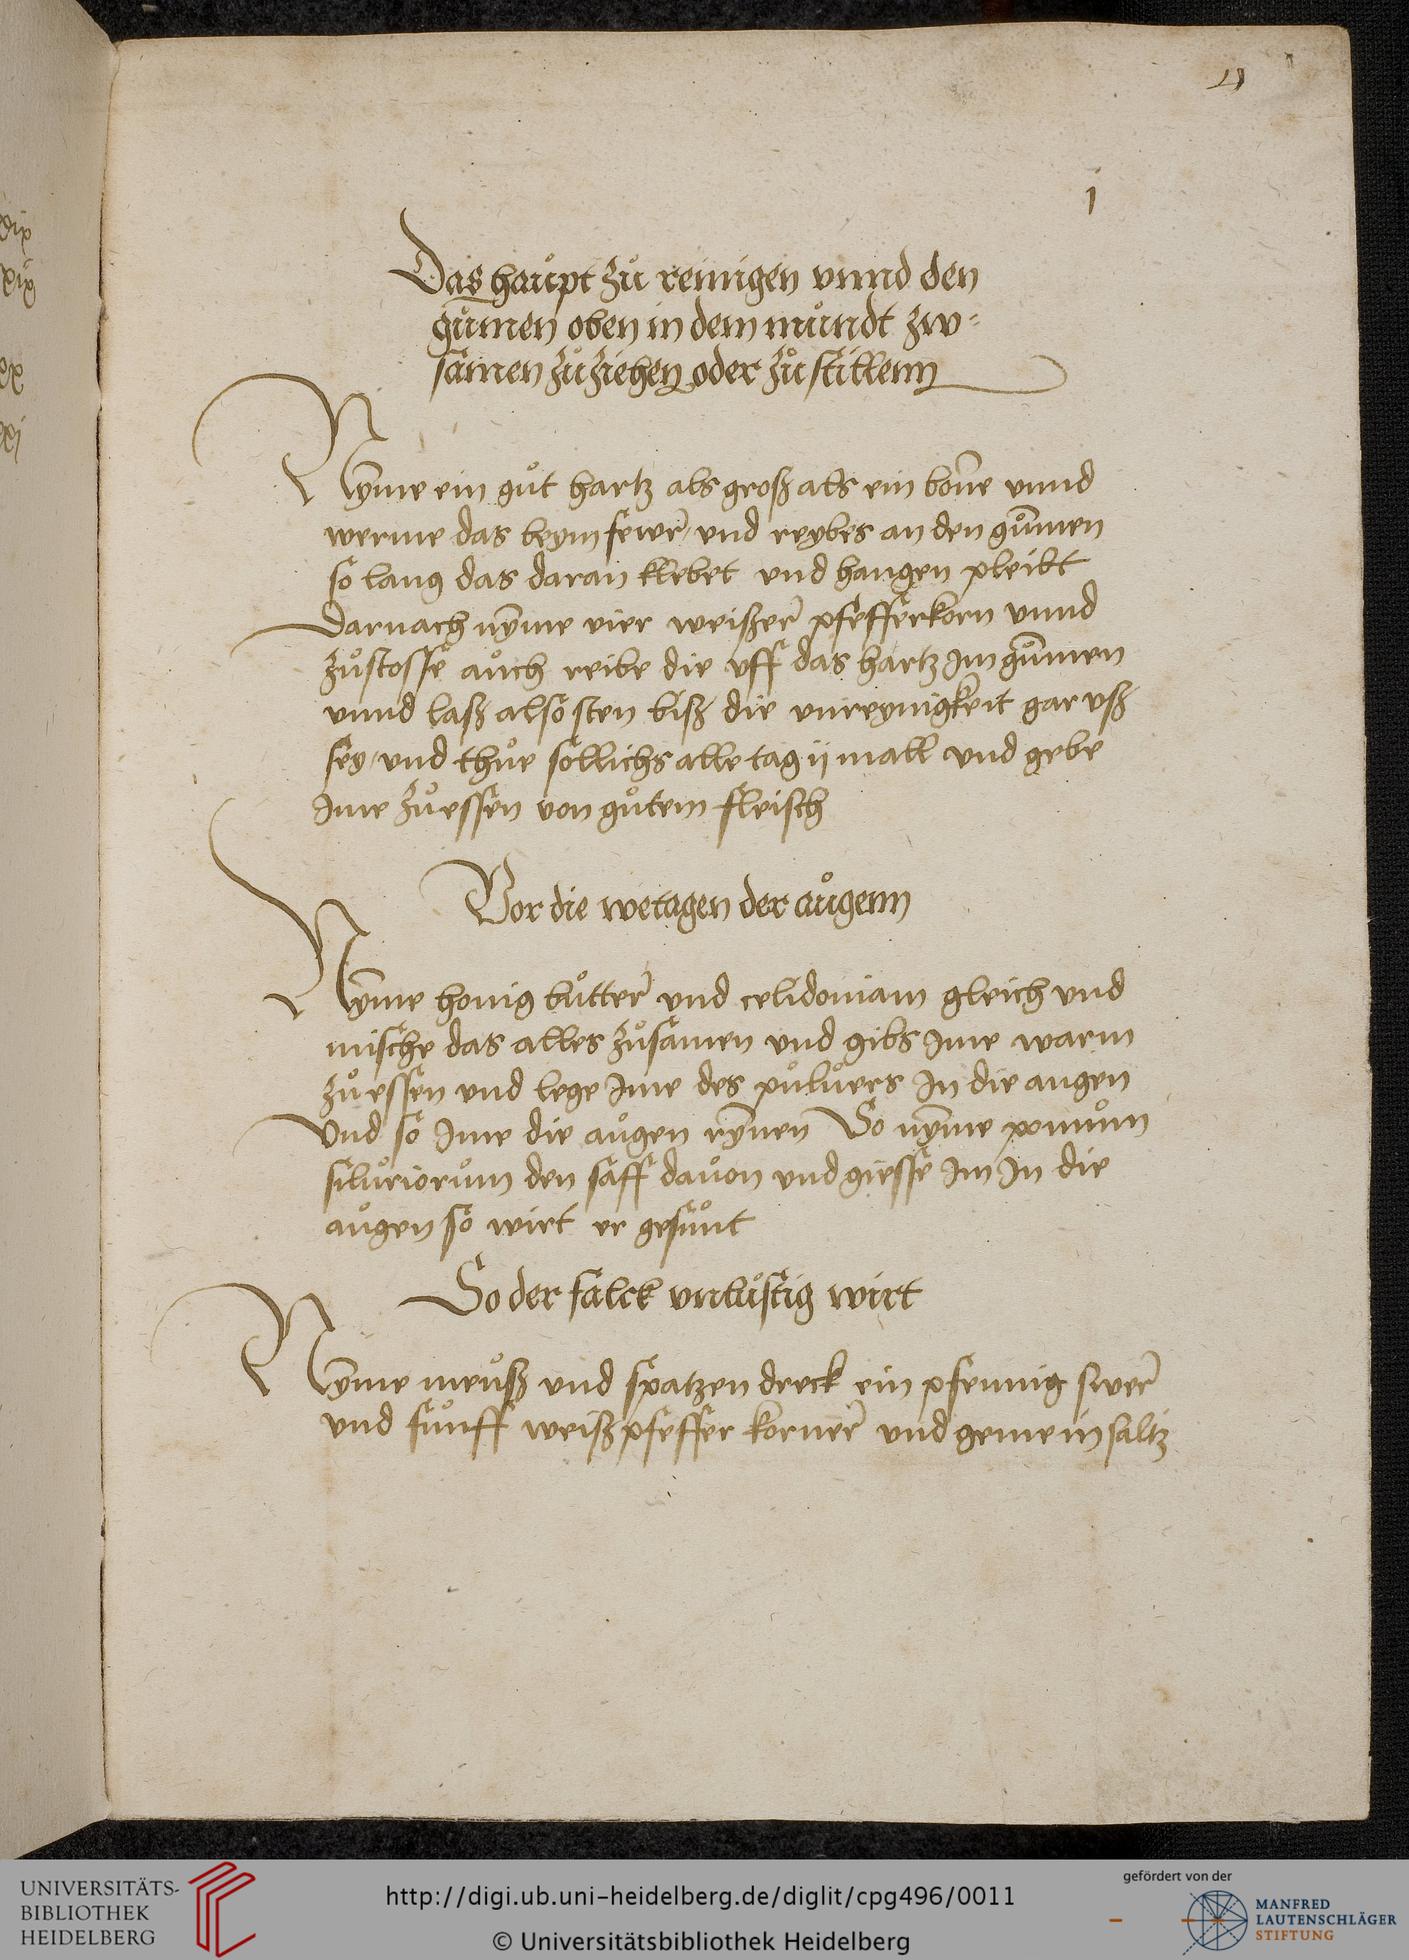 4
j
Das haůpt zů reinigen vnnd den
gůmen oben in dem můndt zw=
samen zů ziehen oder zů stillenn
Nyme ein gůt hartz als groß als ein bone vnnd
werme das beym fewr / vnd reybes an den gůmen
so lang das daran klebet vnd hangen pleibt
Darnach nyme vier weißer pfefferkorn vnnd
zůstosse aůch reibe die vff das hartz im gůmen
vnnd laß also sten biß die vnreynigkeit gar vß
sey / vnd thůe sollichs alle tag ij mall vnd gebe
Ime zů essen von gůtem fleisch
Vor die wetagen der aůgenn
Nyme honig bůtter vnd celidoniam gleich vnd
mische das alles zůsamen vnd gibs Ime warm
zů essen vnd lege Ime des půlůers In die augen
Vnd so Ime die aůgen rynen So nyme pomům
silůriorům den saff daůon vnd giesse Im In die
aůgen so wirt er gesůnt
So der falck vnlůstig wirt
Nyme meůß vnd spatzen dreck ein pfennig swer
vnd fůnff weiß pfeffer korner vnd gemein saltz
UNIVERSITÄTS-
BIBLIOTHEK
HEIDELBERG
http://digi.ub.uni-heidelberg.de/diglit/cpg496/0011
© Universitätsbibliothek Heidelberg
gefördert von der
MANFRED
LAUTENSCHLÄGER
STIFTUNG